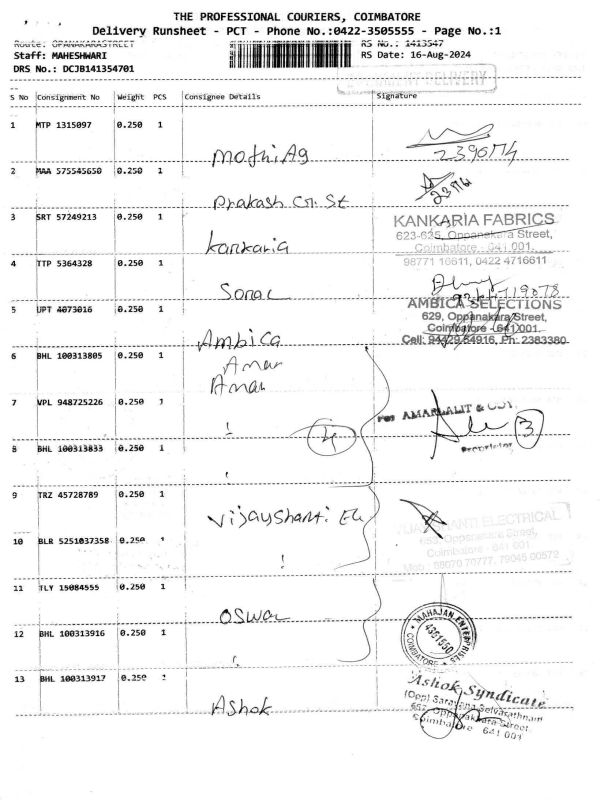 THE PROFESSIONAL COURIERS, COIMBATORE
Delivery Runsheet - PCT - Phone No.:0422-3505555 - Page No.:1
Route: OPANAKARASTREET
RS No.: 1413547
Staff: MAHESHWARI
RS Date: 16-Aug-2024
DRS No.: DCJB141354701
DELIVERY
S No Consignment No Weight PCS Consignee Details Signature
1 MTP 1315097 0.250 1
Mothi Ag
239674
2 MAA 575545650 0.250 1
Prakash Cr. St
3 SRT 57249213 0.250 1
Kankaria
KANKARIA FABRICS
623-625, Oppanakara Street,
Coimbatore - 641 001.
98771 16611, 0422 4716611
4 TTP 5364328 0.250 1
Sonal
5 UPT 4073016 0.250 1
Ambica
AMBICA SELECTIONS
629, Oppanakara Street,
Coimbatore - 641001.
Cell: 94429 84916, Ph: 2383380
6 BHL 100313805 0.250 1
Aman
Aman
7 VPL 948725226 0.250 1
!
4
For AMARLALIT & COY.
3
Proprietor
8 BHL 100313833 0.250 1
!
9 TRZ 45728789 0.250 1
Vijayshanti Ele
10 BLR 5251037358 0.250 1
!
SHANTI ELECTRICAL
652 Oppanakara Street,
Coimbatore - 641 001
Mob : 98070 70777, 79045 00572
11 TLY 15084555 0.250 1
Oswal
12 BHL 100313916 0.250 1
!
MAHAJAN ENTERPRISES
4351550
COIMBATORE
13 BHL 100313917 0.250 1
Ashok
Ashok Syndicate
(Opp) Saravana Selvarathnam
657, Oppanakkara Street
Coimbatore 641 001